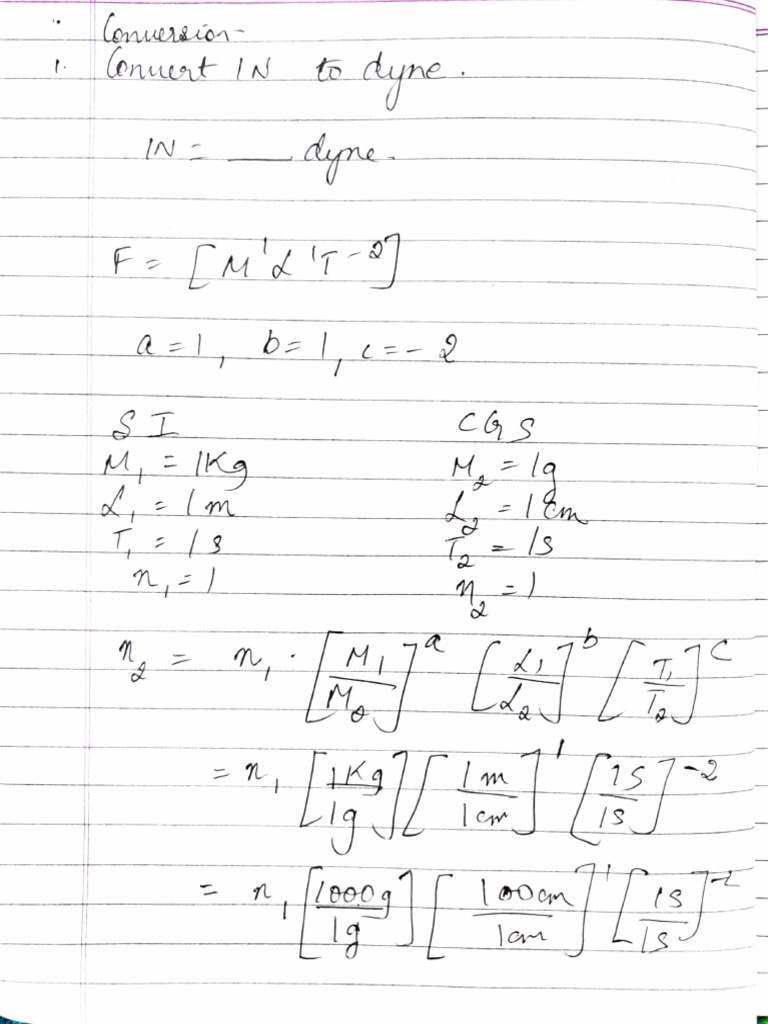 Conversion-
1. Convert 1N to dyne.
1N = ___ dyne.
F = [M¹L¹T⁻²]
a = 1, b = 1, c = - 2
SI CGS
M₁ = 1Kg M₂ = 1g
L₁ = 1m L₂ = 1cm
T₁ = 1s T₂ = 1s
n₁ = 1 n₂ = 1
n₂ = n₁ · [M₁/M₂]ᵃ [L₁/L₂]ᵇ [T₁/T₂]ᶜ
= n₁ [1Kg/1g] [1m/1cm]¹ [1s/1s]⁻²
= n₁ [1000g/1g] [100cm/1cm]¹ [1s/1s]⁻²